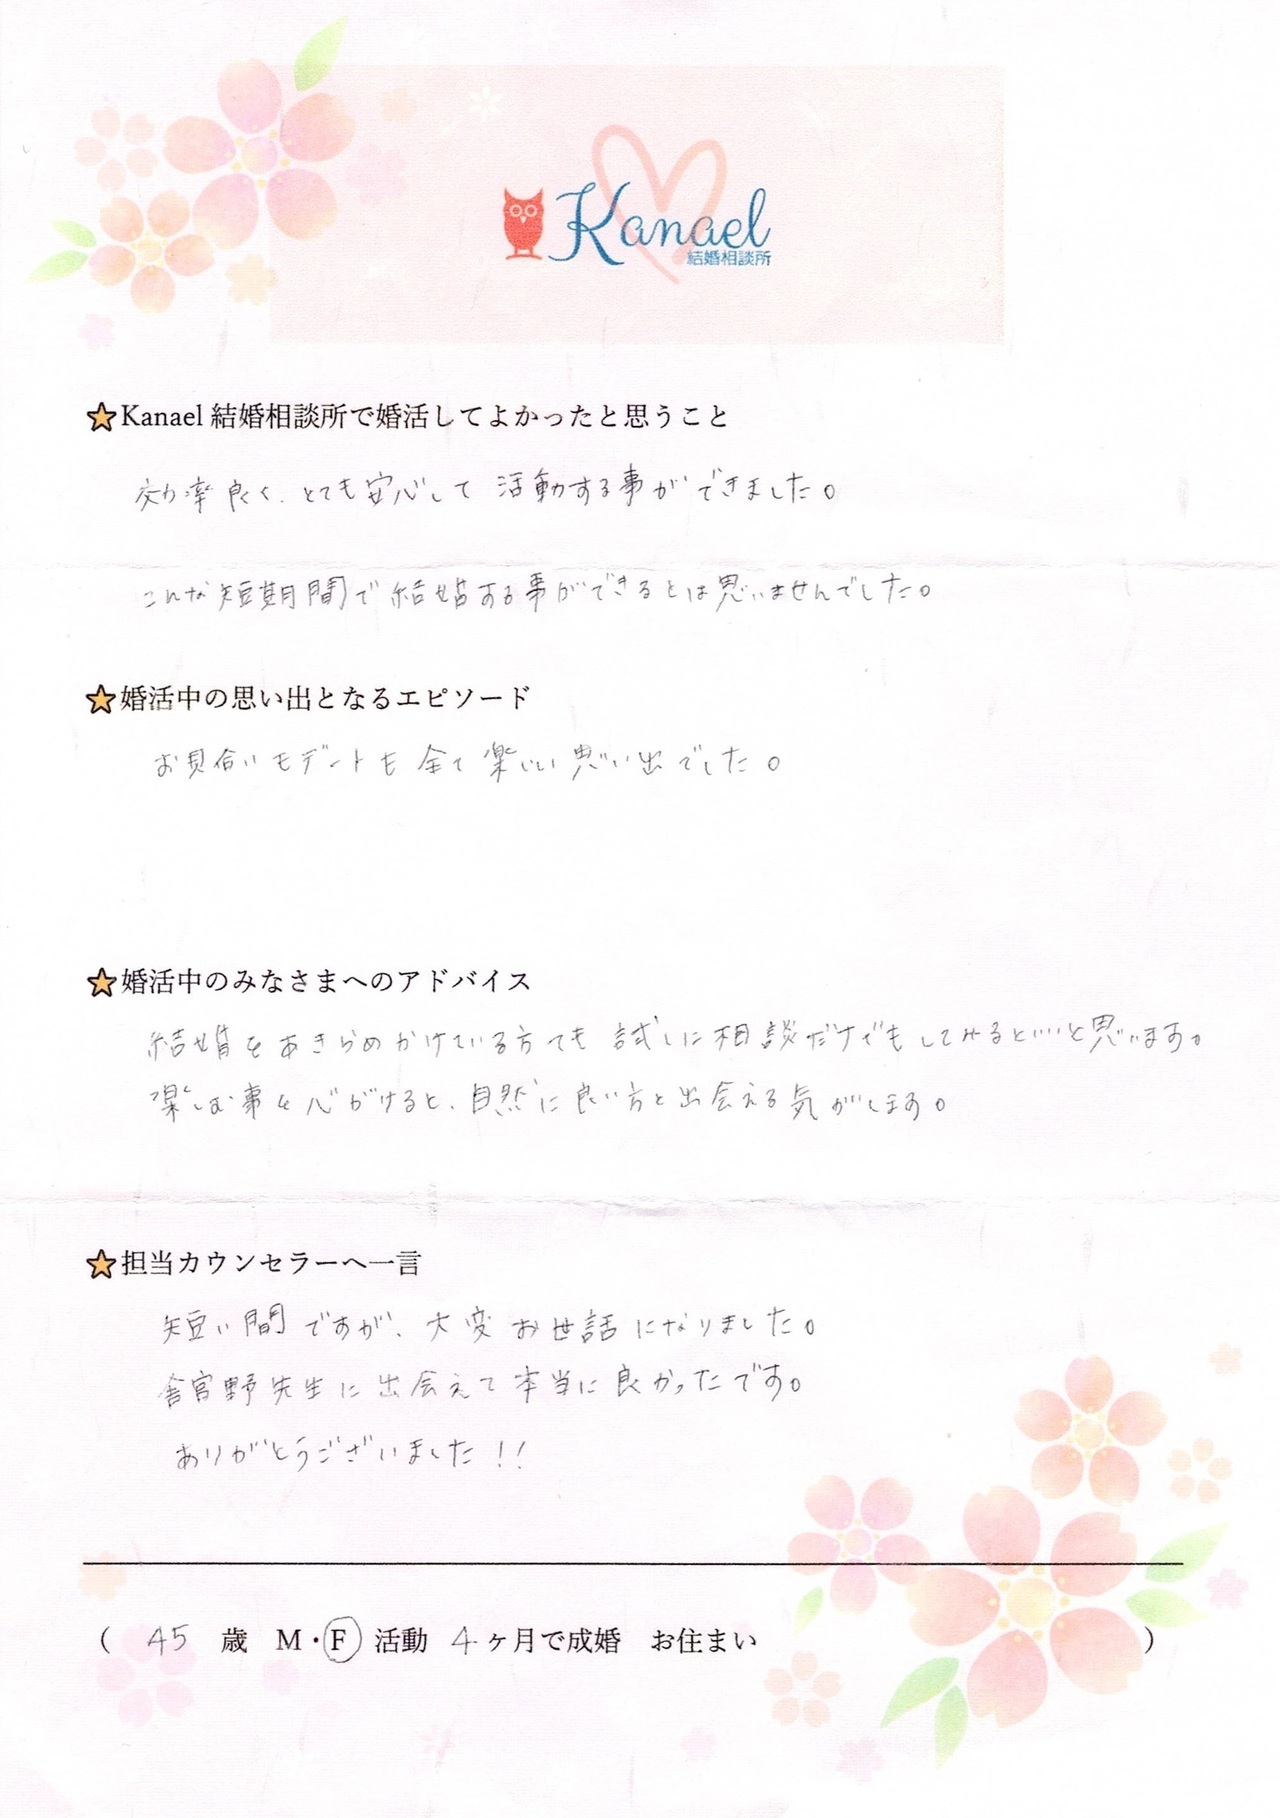 Kanael
結婚相談所
Kanael 結婚相談所で婚活してよかったと思うこと
効率良く、とても安心して 活動する事ができました。
こんな短期間で結婚する事ができるとは思いませんでした。
婚活中の思い出となるエピソード
お見合いもデートも 全て楽しい思い出でした。
婚活中のみなさまへのアドバイス
結婚をあきらめかけている方でも 試しに相談だけでもしてみるといいと思います。
楽しむ事を心がけると、自然に良い方と出会える気がします。
担当カウンセラーへ一言
短い間ですが、大変お世話になりました。
舎官野先生に出会えて本当に良かったです。
ありがとうございました!!
( 45 歳 M・F 活動 4ヶ月で成婚 お住まい )